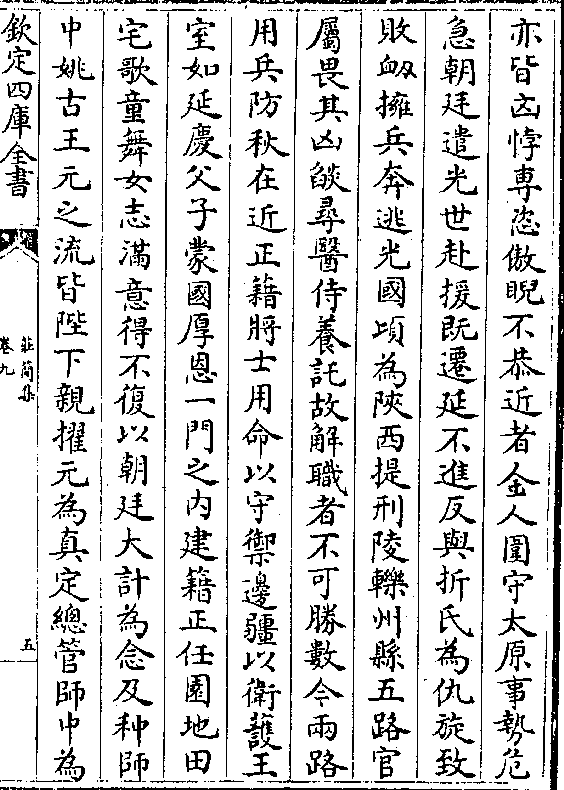 亦皆凶悖専恣傲睨不恭近者金人圍守太原事勢危
急朝廷遣光世赴援既遷延不進反與折氏為仇旋致
敗衂擁兵奔逃光國頃為陜西提刑陵轢州縣五路官
屬畏其凶燄尋醫侍養託故解職者不可勝數今兩路
用兵防秋在近正藉將士用命以守禦邊疆以衛護王
室如延慶父子蒙國厚恩一門之内建籍正任園地田
宅歌童舞女志滿意得不復以朝廷大計為念及种師
中姚古王元之流皆陛下親擢元為真定總管師中為
欽定四庫全書
莊簡集
卷九
五